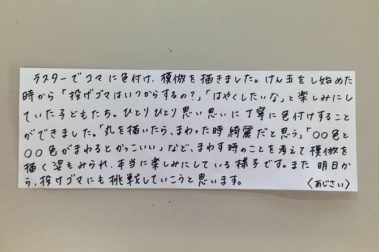 ラスターでコマに色付け、模倣を描きました。けん玉をし始めた
時から「投げゴマはいつからするの?」「はやくしたいな」と楽しみにし
ていた子どもたち。ひとりひとり思い思いに丁寧に色付けすること
ができました。「丸を描いたら、まわった時綺麗だと思う。「〇〇色と
〇〇色がまわるとかっこいい」など、まわす時のことを考えて模倣を
描く姿もみられ、本当に楽しみにしている様子です。また明日か
ら、投げゴマにも挑戦していこうと思います。
〈あじさい〉